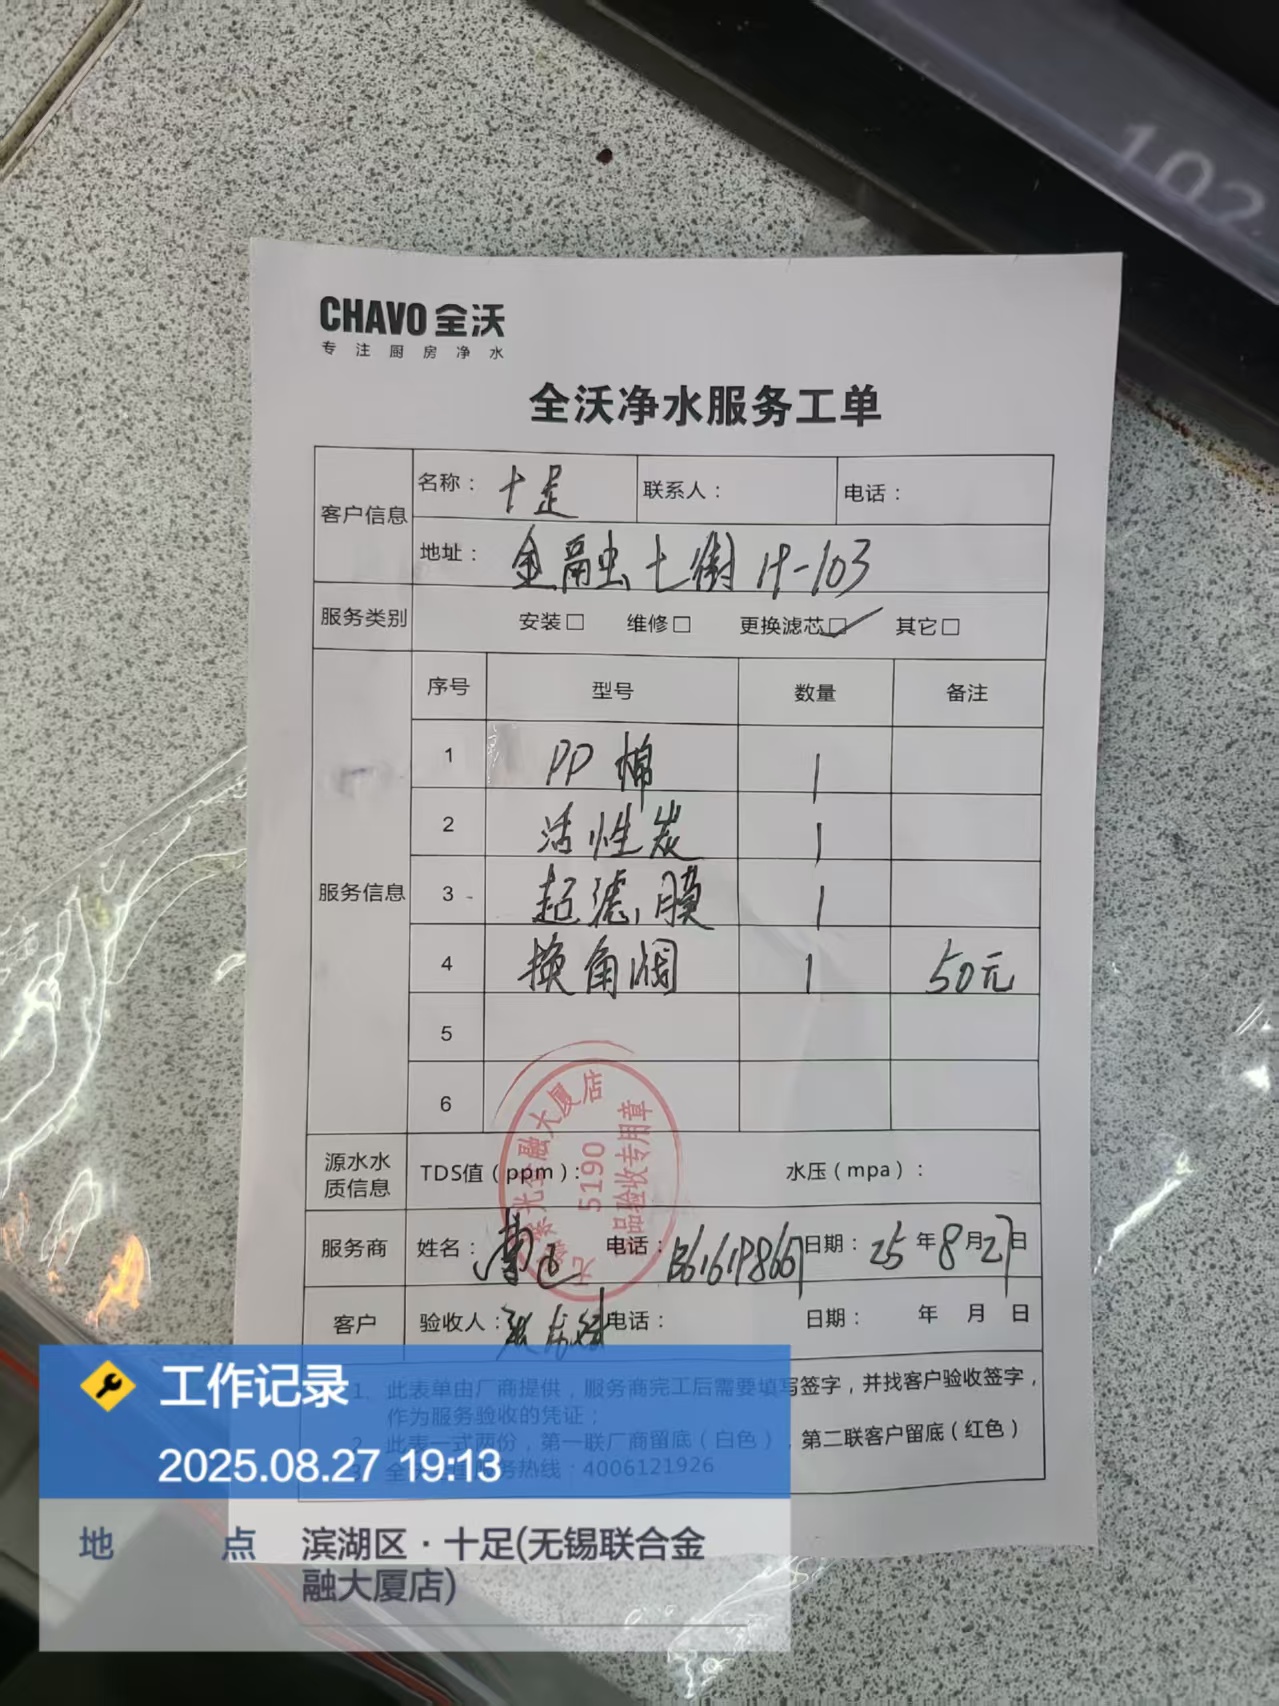 102
CHAVO 全沃
专注厨房净水
全沃净水服务工单
客户信息 名称： 十足 联系人： 电话：
地址： 金融 七街 19-103
服务类别 安装□ 维修□ 更换滤芯□✓ 其它□
服务信息 序号 型号 数量 备注
1 PP棉 1
2 活性炭 1
3 超滤膜 1
4 换角阀 1 50元
5
6
金融大厦店
5190
品验收专用章
源水水质信息 TDS值（ppm）： 水压（mpa）：
服务商 姓名： 电话： 日期： 25 年 8 月 27 日
客户 验收人： 电话： 日期： 年 月 日
1、此表单由厂商提供，服务商完工后需要填写签字，并找客户验收签字，
作为服务验收的凭证；
2、此表一式两份，第一联厂商留底（白色），第二联客户留底（红色）
3、全 服务热线：4006121926
工作记录
2025.08.27 19:13
地 点 滨湖区·十足(无锡联合金
融大厦店)